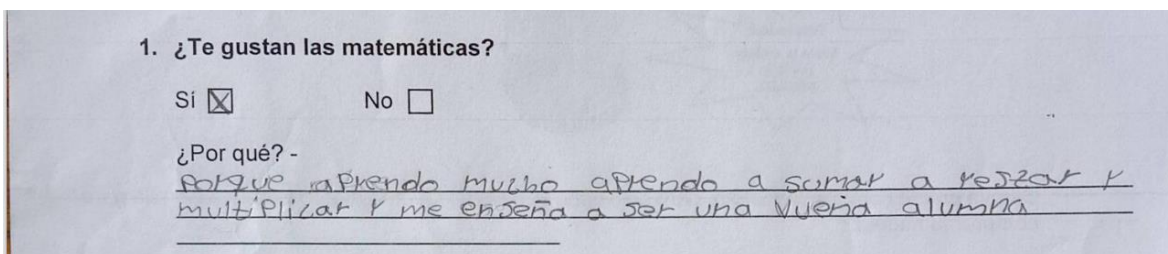 1. ¿Te gustan las matemáticas?
Sí ☒ No ☐
¿Por qué? -
porque aprendo mucho aprendo a sumar a restar y
multiplicar y me enseña a ser una vuena alumna